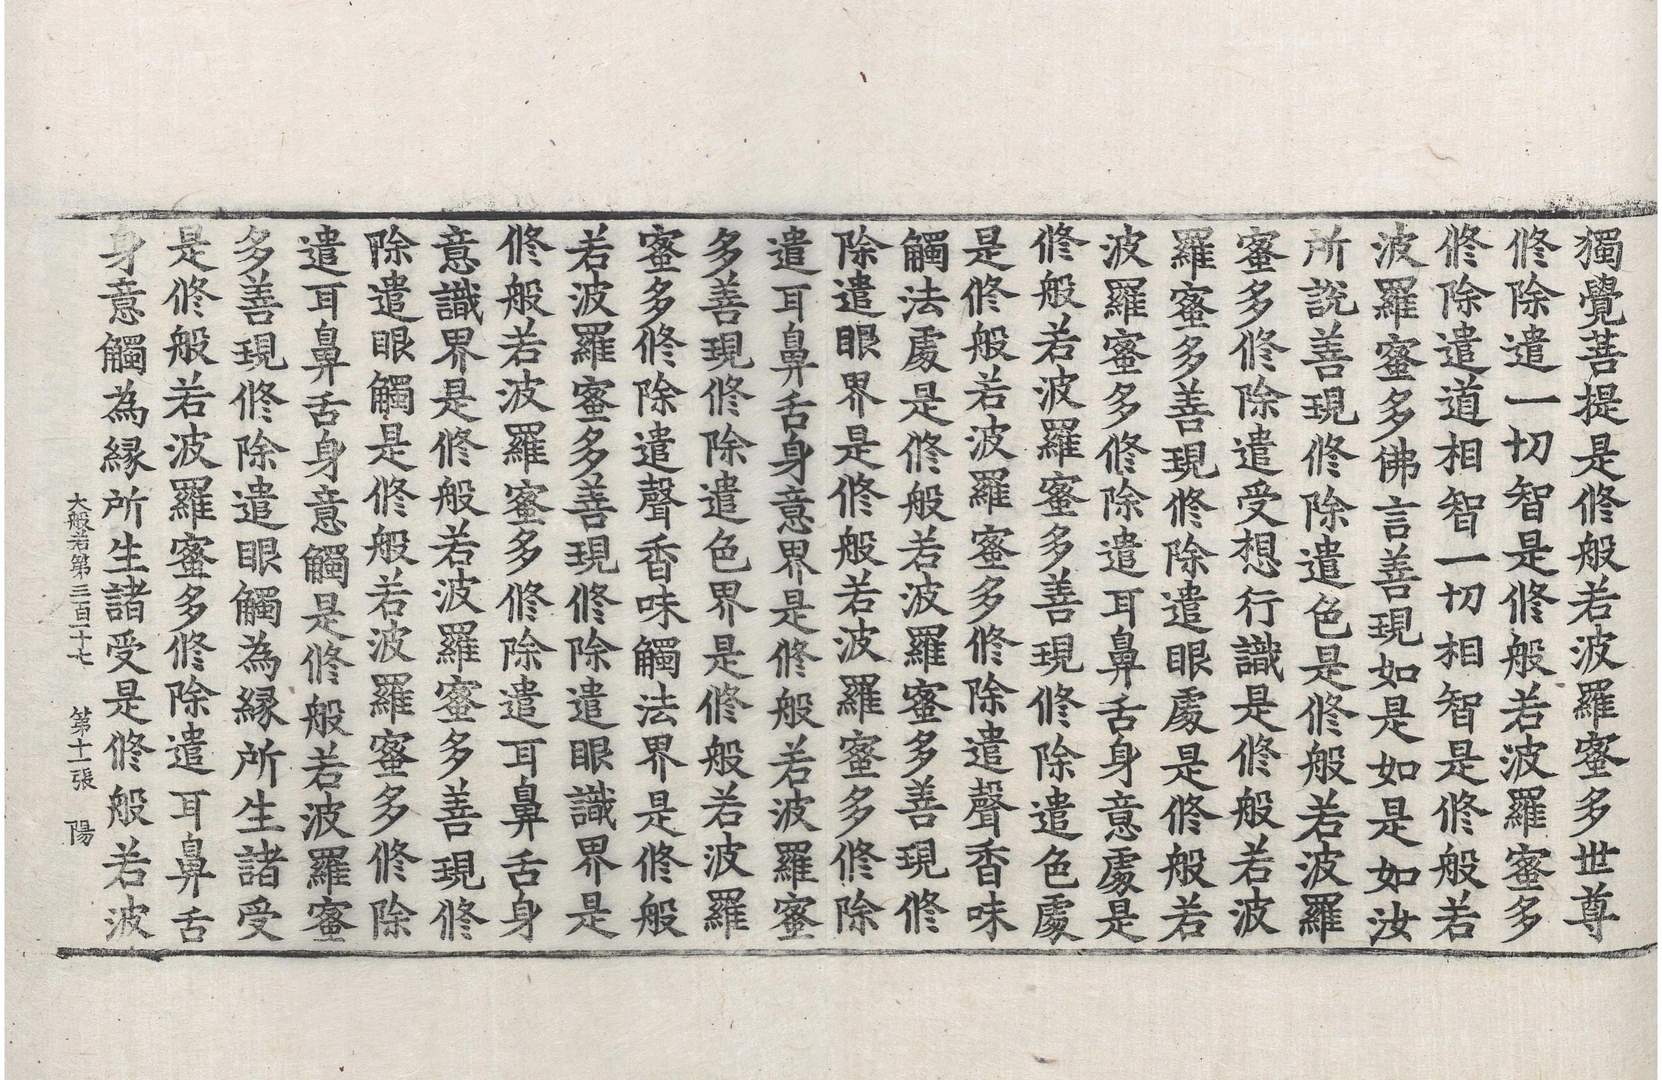 獨覺菩提是修般若波羅蜜多世尊
修除遣一切智是修般若波羅蜜多
修除遣道相智一切相智是修般若
波羅蜜多佛言善現如是如是如汝
所說善現修除遣色是修般若波羅
蜜多修除遣受想行識是修般若波
羅蜜多善現修除遣眼處是修般若
波羅蜜多修除遣耳鼻舌身意處是
修般若波羅蜜多善現修除遣色處
是修般若波羅蜜多修除遣聲香味
觸法處是修般若波羅蜜多善現修
除遣眼界是修般若波羅蜜多修除
遣耳鼻舌身意界是修般若波羅蜜
多善現修除遣色界是修般若波羅
蜜多修除遣聲香味觸法界是修般
若波羅蜜多善現修除遣眼識界是
修般若波羅蜜多修除遣耳鼻舌身
意識界是修般若波羅蜜多善現修
除遣眼觸是修般若波羅蜜多修除
遣耳鼻舌身意觸是修般若波羅蜜
多善現修除遣眼觸為緣所生諸受
是修般若波羅蜜多修除遣耳鼻舌
身意觸為緣所生諸受是修般若波
大般若第三百十七 第十一張 陽